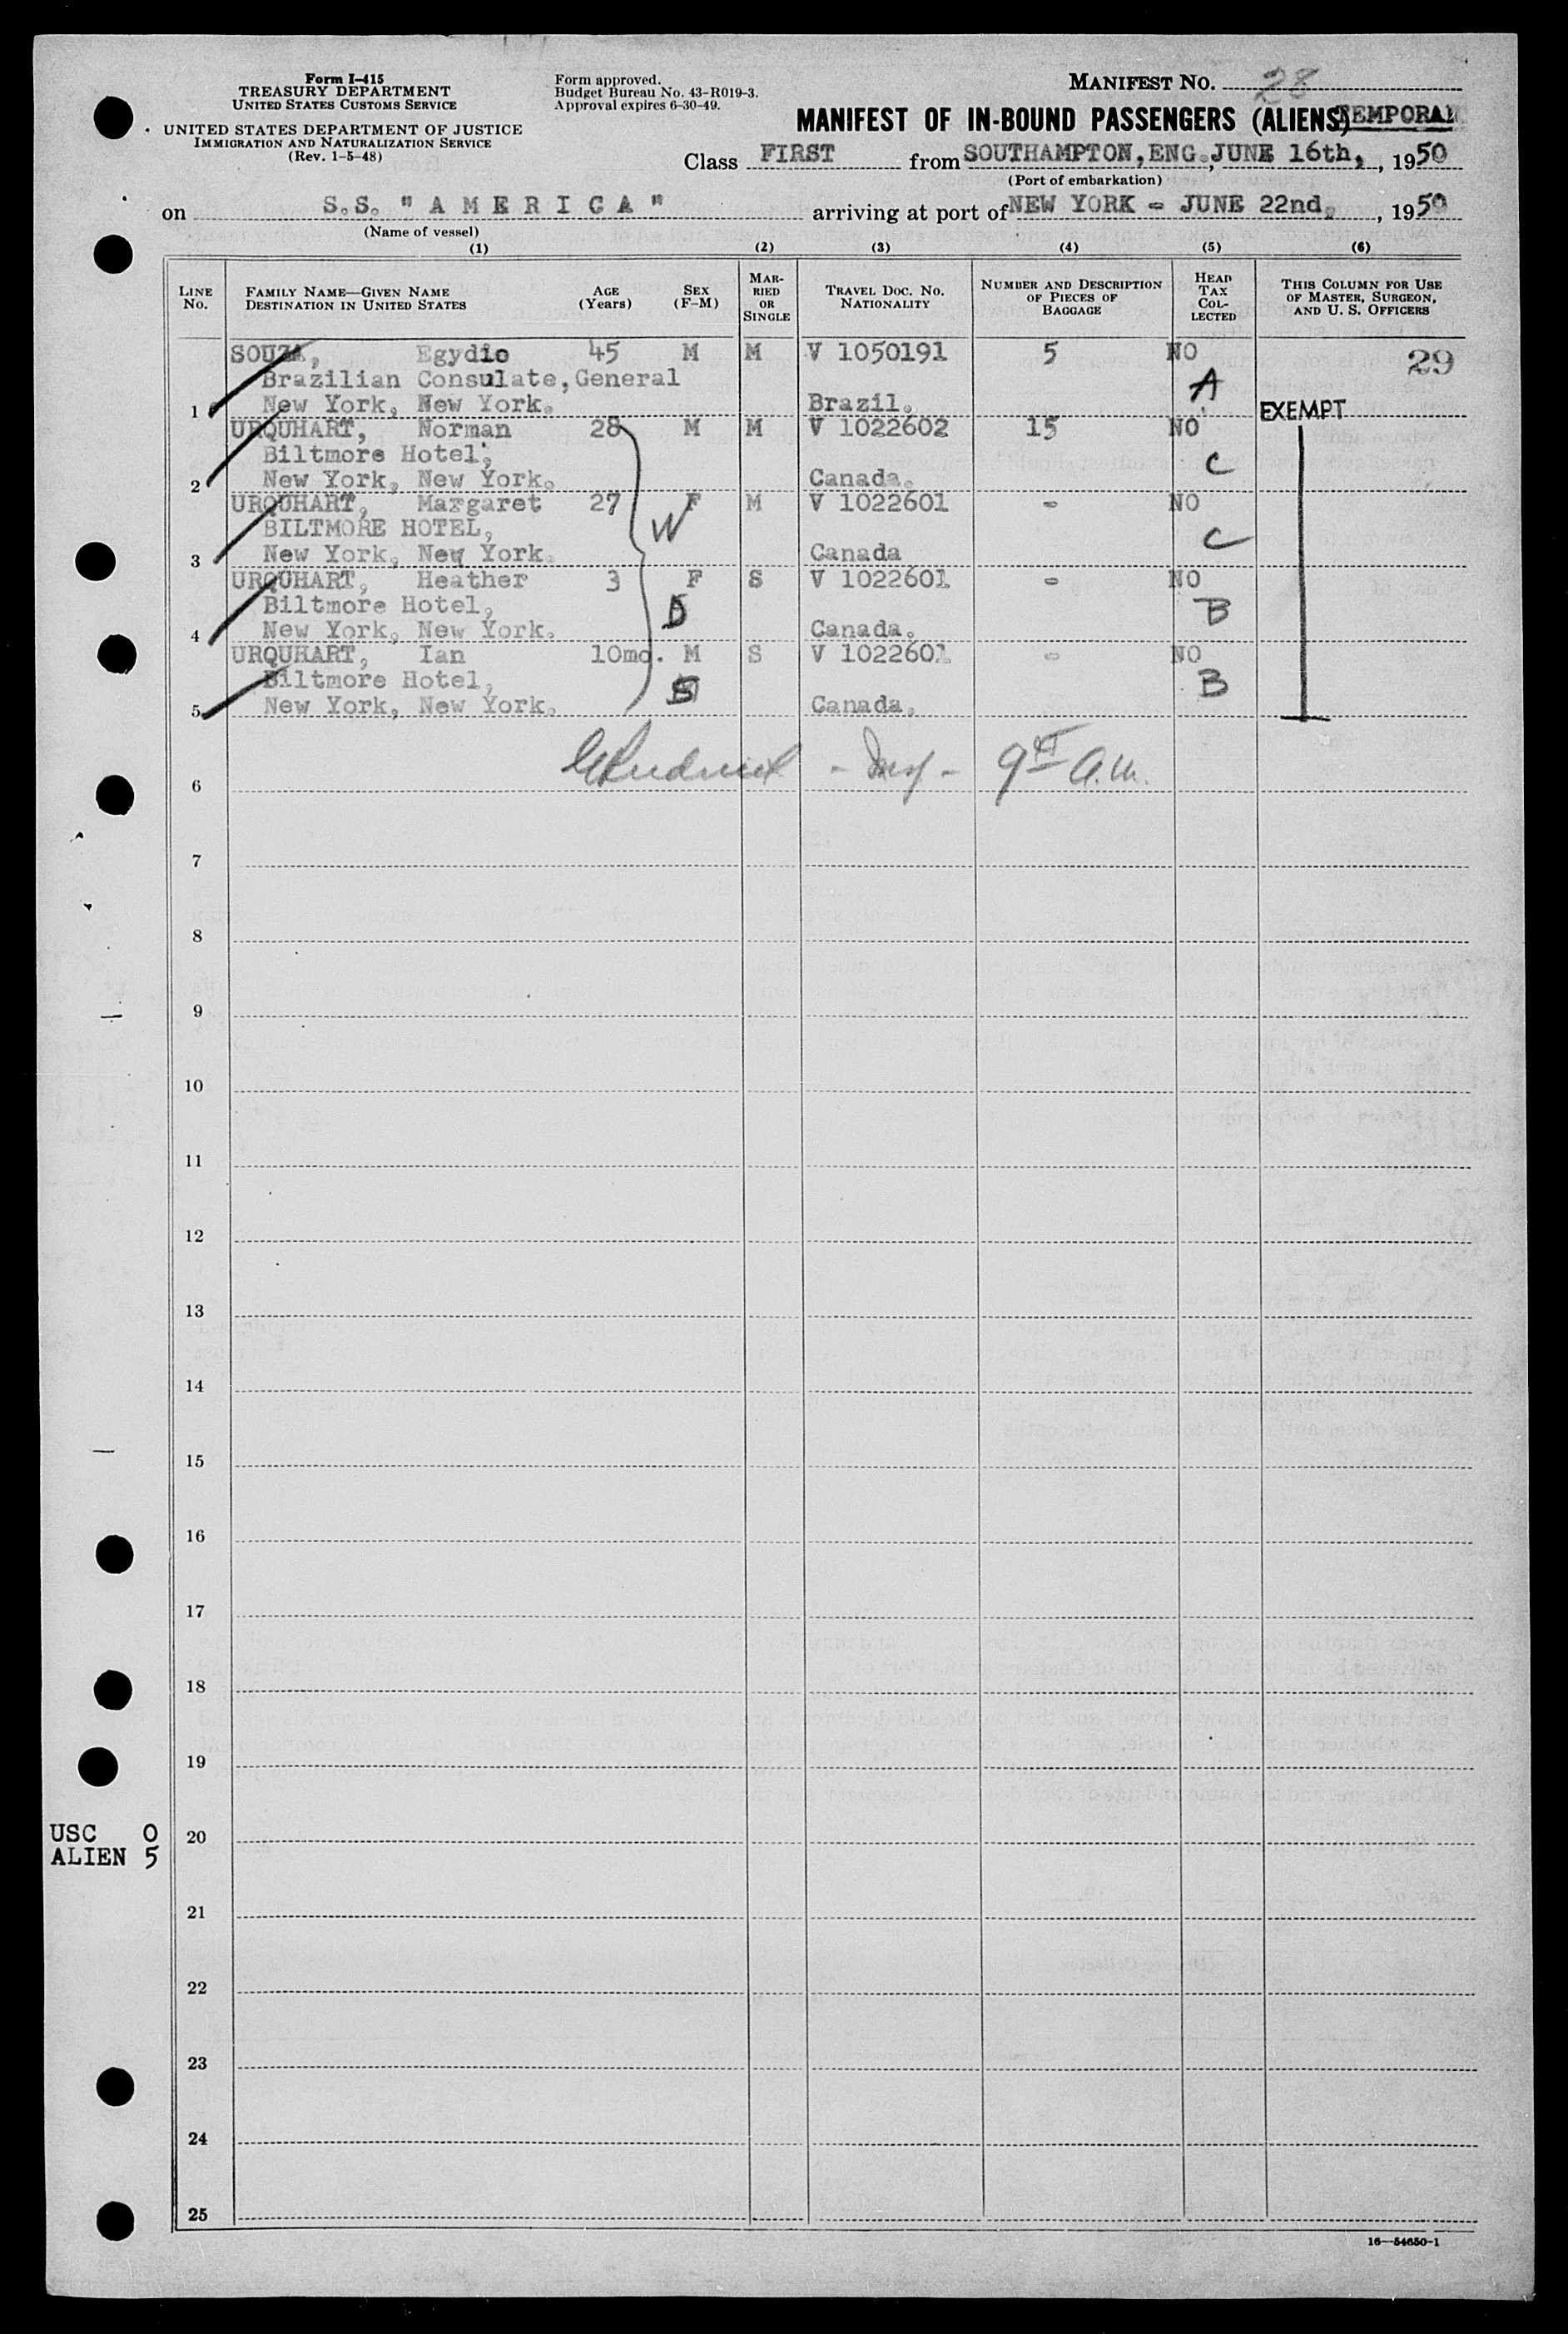 Form I-415
TREASURY DEPARTMENT
UNITED STATES CUSTOMS SERVICE
UNITED STATES DEPARTMENT OF JUSTICE
IMMIGRATION AND NATURALIZATION SERVICE
(Rev. 1-5-48)
Form approved.
Budget Bureau No. 43-R019-3.
Approval expires 6-30-49.
MANIFEST NO. 28
MANIFEST OF IN-BOUND PASSENGERS (ALIENS)
Class FIRST from SOUTHAMPTON, ENG., JUNE 16th, , 1950
(Port of embarkation)
on S.S. "A M E R I C A" arriving at port of NEW YORK - JUNE 22nd, , 1950
(Name of vessel)
(1) (2) (3) (4) (5) (6)
LINE NO. FAMILY NAME—GIVEN NAME DESTINATION IN UNITED STATES AGE (Years) SEX (F-M) MARRIED OR SINGLE TRAVEL DOC. NO. NATIONALITY NUMBER AND DESCRIPTION OF PIECES OF BAGGAGE HEAD TAX COLLECTED THIS COLUMN FOR USE OF MASTER, SURGEON, AND U. S. OFFICERS
SOUZA, Egydio 45 M M V 1050191 5 NO 29
Brazilian Consulate, General A
1 New York, New York. Brazil. EXEMPT
URQUHART, Norman 28 M M V 1022602 15 NO
Biltmore Hotel, C
2 New York, New York. Canada.
URQUHART, Margaret 27 F M V 1022601 - NO
BILTMORE HOTEL, W C
3 New York, New York. Canada
URQUHART, Heather 3 F S V 1022601 - NO
Biltmore Hotel, D B
4 New York, New York. Canada.
URQUHART, Ian 10mo. M S V 1022601 - NO
Biltmore Hotel, S B
5 New York, New York. Canada.
6 - Insp - 9 A.M.
7
8
9
10
11
12
13
14
15
16
17
18
19
USC 0
20
ALIEN 5
21
22
23
24
25
16—54650-1